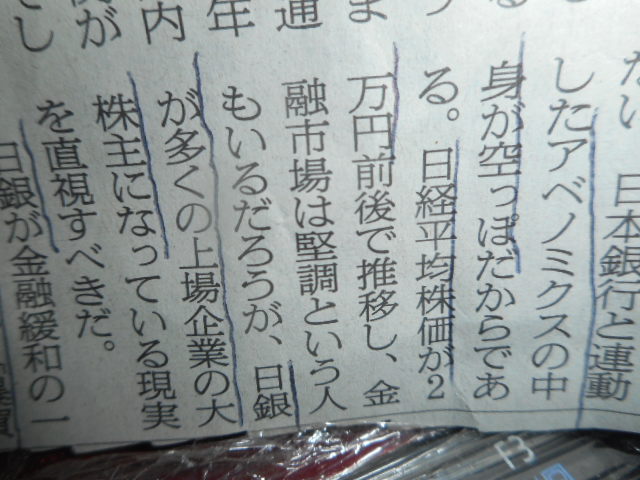 ない　日本銀行と連動
したアベノミクスの中
身が空っぽだからであ
る。日経平均株価が2
万円前後で推移し、金
融市場は堅調という人
もいるだろうが、日銀
が多くの上場企業の大
株主になっている現実
を直視すべきだ。
日銀が金融緩和の一
る
ま
通
年
内
が
でし
F3